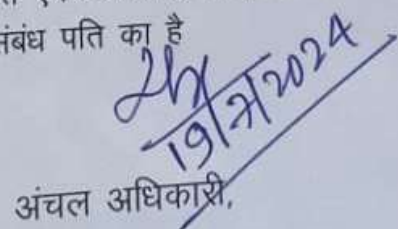 संबंध पति का है
19/7/2024
अंचल अधिकारी,